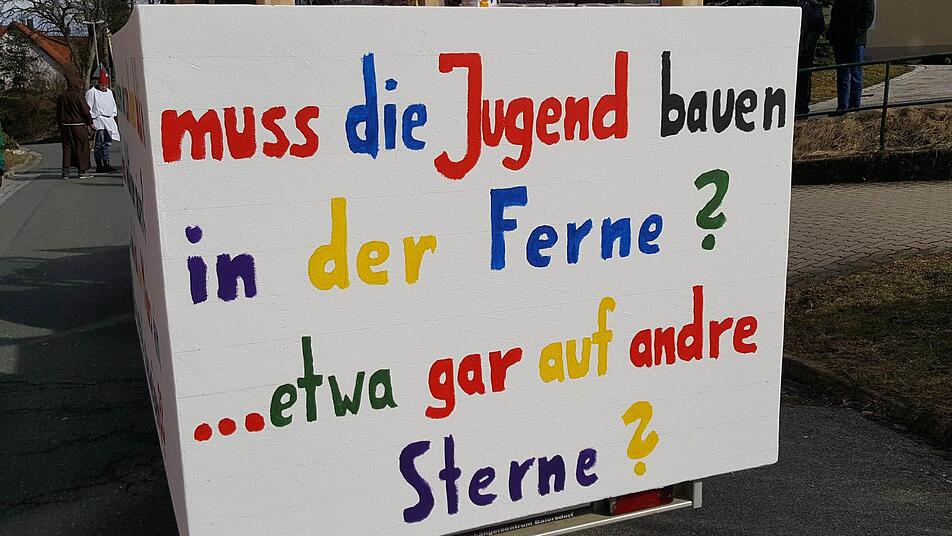 muss die Jugend bauen
in der Ferne ?
...etwa gar auf andre
Sterne ?
hängerzentrum Baiersdorf